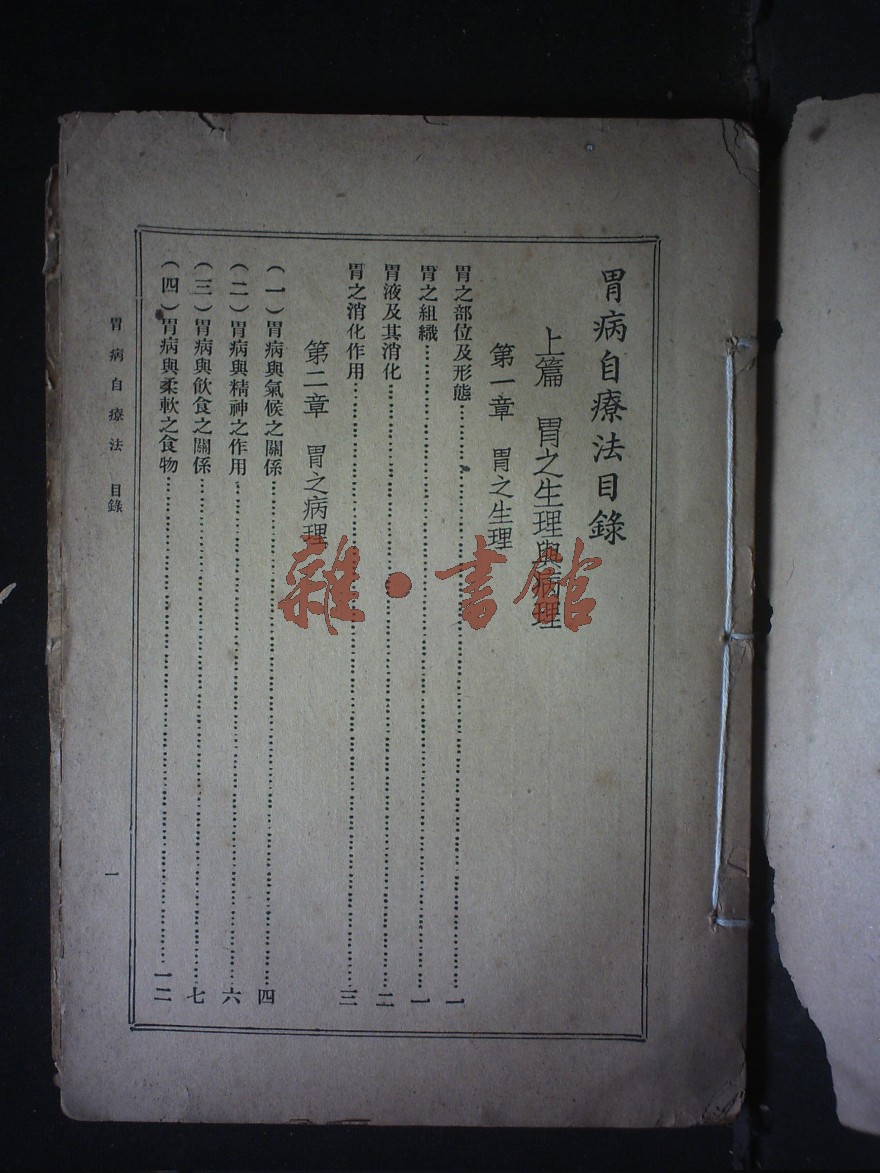 胃病自療法目錄
上篇　胃之生理與病理
第一章　胃之生理
胃之部位及形態……一
胃之組織……一
胃液及其消化……二
胃之消化作用……三
第二章　胃之病理
（一）胃病與氣候之關係……四
（二）胃病與精神之作用……六
（三）胃病與飲食之關係……七
（四）胃病與柔軟之食物……一二
胃病自療法　目錄
一
雜·書館